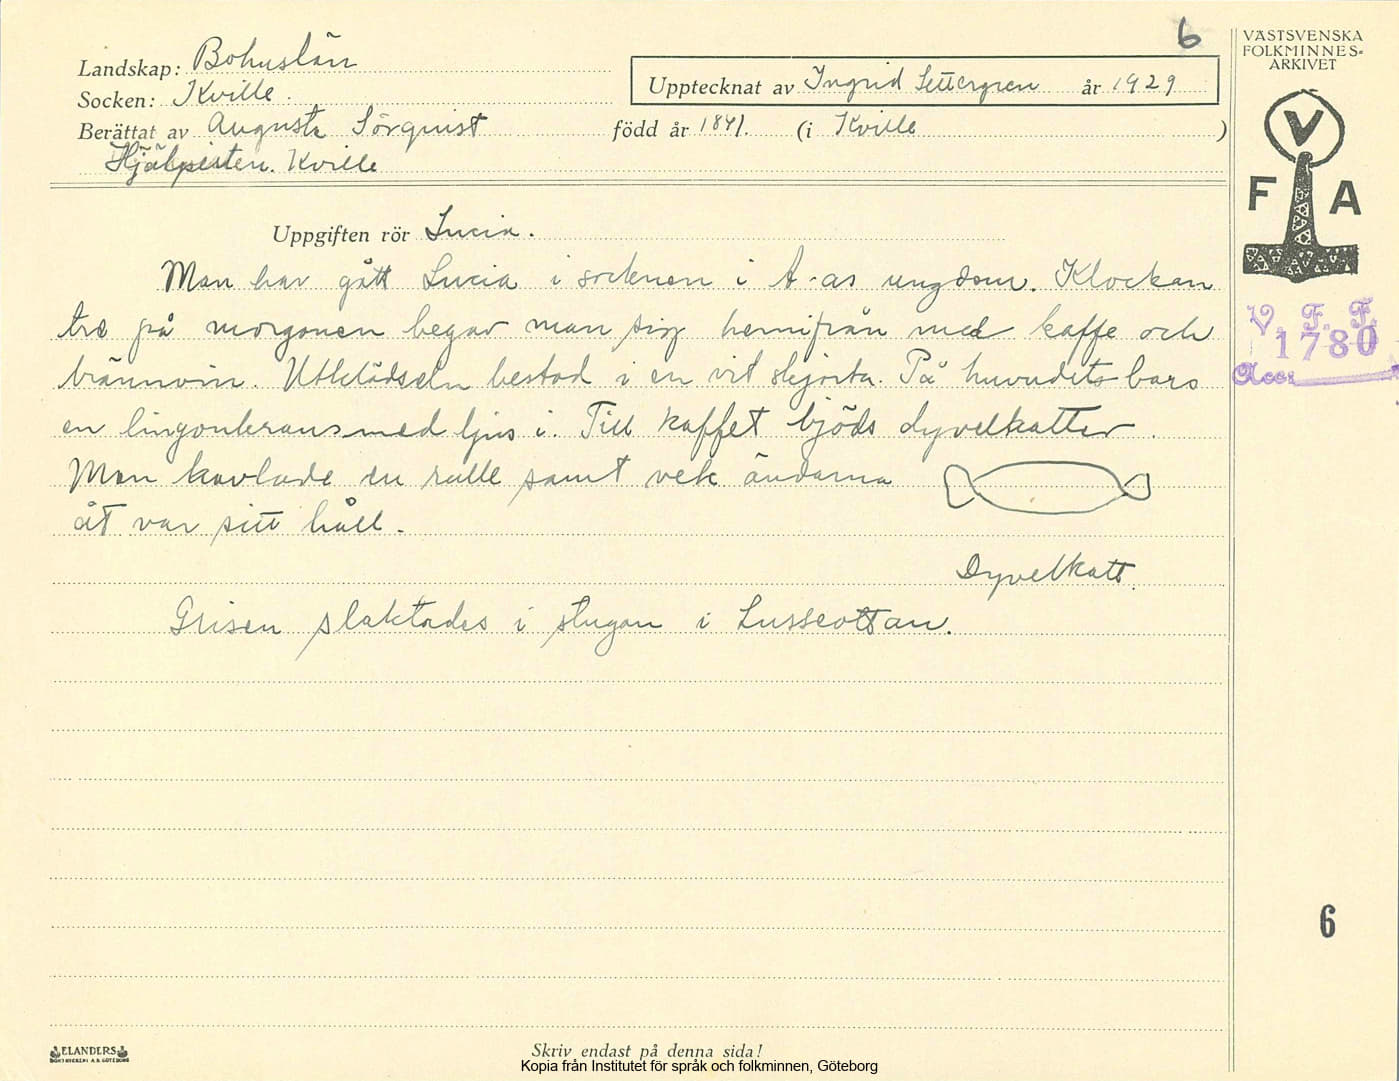 6
VÄSTSVENSKA
FOLKMINNES-
ARKIVET
Landskap: Bohuslän
Socken: Kville.
Upptecknat av Ingrid Settergren år 1929
Berättat av Augusta Sörquist född år 1841. (i Kville )
Hjälpesten. Kville
V
F A
Uppgiften rör Lucia.
Man har gått Lucia i socknen i A-as ungdom. Klockan
tre på morgonen begav man sig hemifrån med kaffe och
brännvin. Utklädseln bestod i en vit skjorta. På huvudet bars
en lingonkrans med ljus i. Till kaffet bjöds dyvelkatter.
Man kavlade en rulle samt vek ändarna
åt var sitt håll.
Dyvelkatt.
Grisen slaktades i stugan i Lusseottan.
V. F. F.
1780
Acc:
6
ELANDERS
BOKTRYCKERI A.B. GÖTEBORG
Skriv endast på denna sida!
Kopia från Institutet för språk och folkminnen, Göteborg